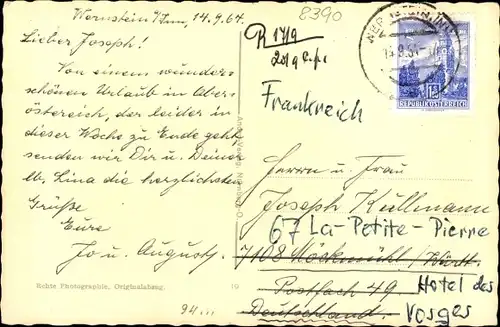 Wernstein a/Inn, 14.9.64.
8390
Lieber Joseph!
Von einem wunder-
schönen Urlaub in Ober-
österreich, der leider in
dieser Woche zu Ende geht,
senden wir Dir u. Deiner
lb. Lina die herzlichsten
Grüße
Eure
Jo u. August.
R 17/9
Frankreich
REPUBLIK ÖSTERREICH
Herrn u. Frau
Joseph Kullmann
67 La-Petite-Pierre
7108 Möckmühl / Württ.
Postfach 49 Hotel des
Deutschland. Vosges
Echte Photographie, Originalabzug.
19
94...